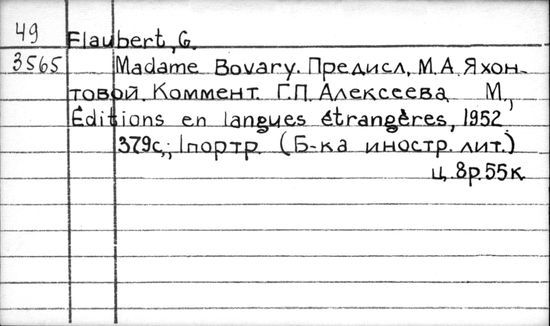 49 Flaubert, G.
3565 Madame Bovary. Предисл, М.А. Яхон-
товой. Коммент. Г.П. Алексеева М,
Éditions en langues étrangères, 1952
379с,; 1портр. (Б-ка иностр. лит.)
ц. 8р. 55к.